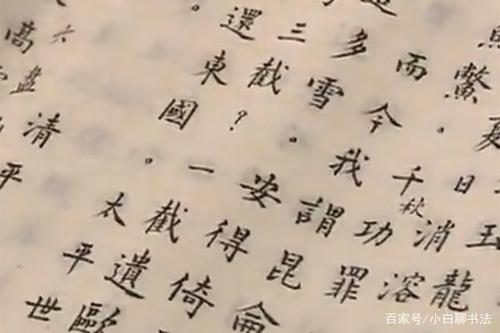 玉龍
夏日消溶
魚鱉。千秋功罪
而今我謂昆侖
多雪。安得倚
三截？一截遺歐
還東國。太平世
清平
六盤
高
百家号/小白聊书法